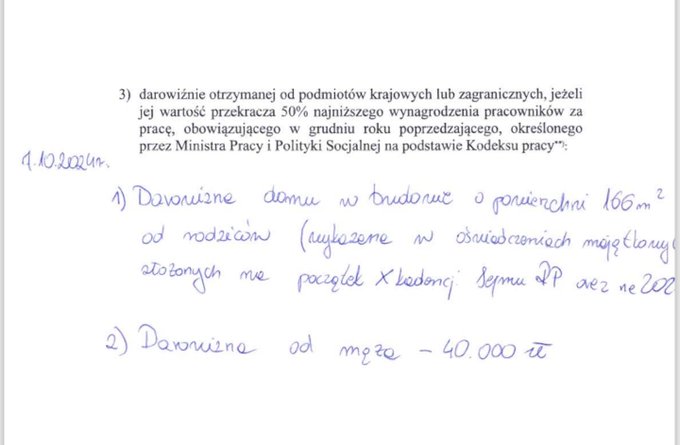 3) darowiźnie otrzymanej od podmiotów krajowych lub zagranicznych, jeżeli
jej wartość przekracza 50% najniższego wynagrodzenia pracowników za
pracę, obowiązującego w grudniu roku poprzedzającego, określonego
przez Ministra Pracy i Polityki Socjalnej na podstawie Kodeksu pracy**):
1.10.2024r.
1) Darowizna domu w budowie o powierzchni 166 m²
od rodziców (wykazana w oświadczeniach majątkowy
złożonych na początek X kadencji Sejmu RP oraz na 202
2) Darowizna od męża - 40.000 zł